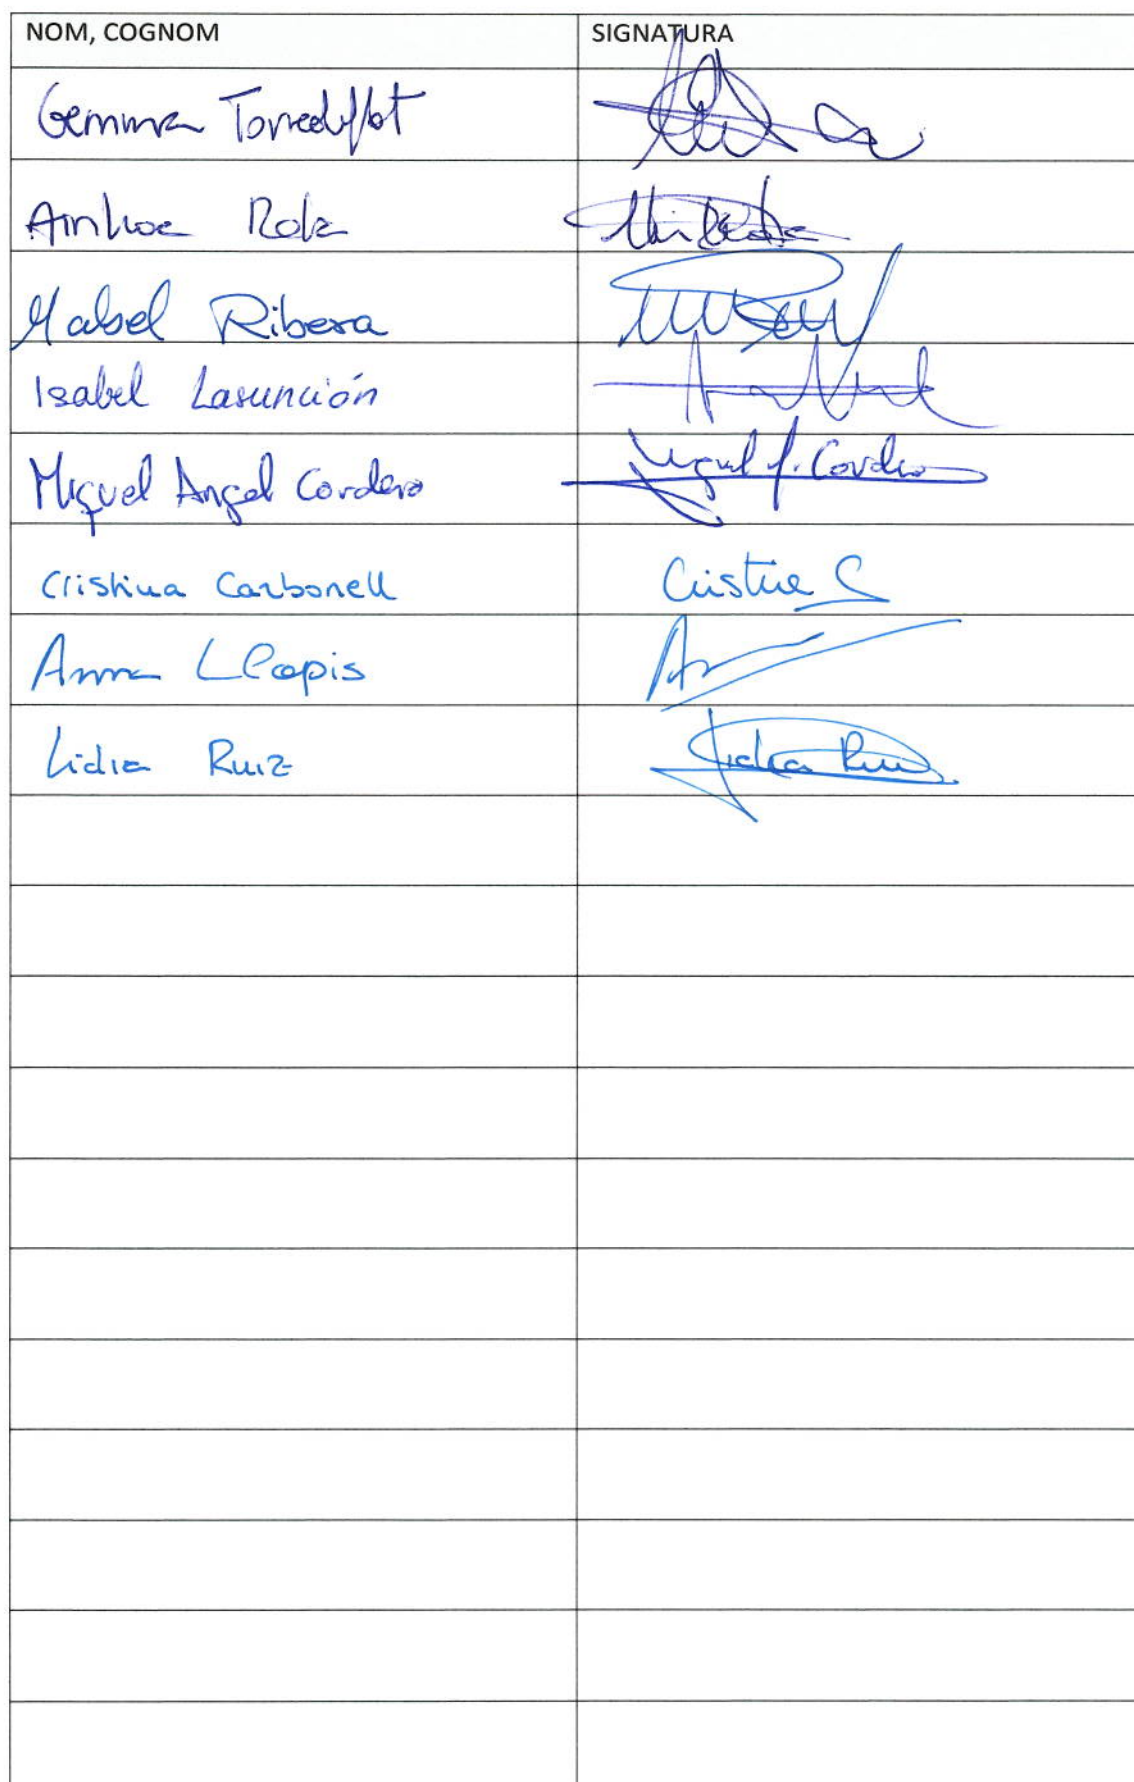 NOM, COGNOM SIGNATURA
Gemma
Ainhoa
Mabel Ribera
Isabel Lasunción
Miguel Angel Cordero Cordero
Cristina Carbonell Cristina C
Anna Llopis
Lidia Ruiz Lidia Ruiz